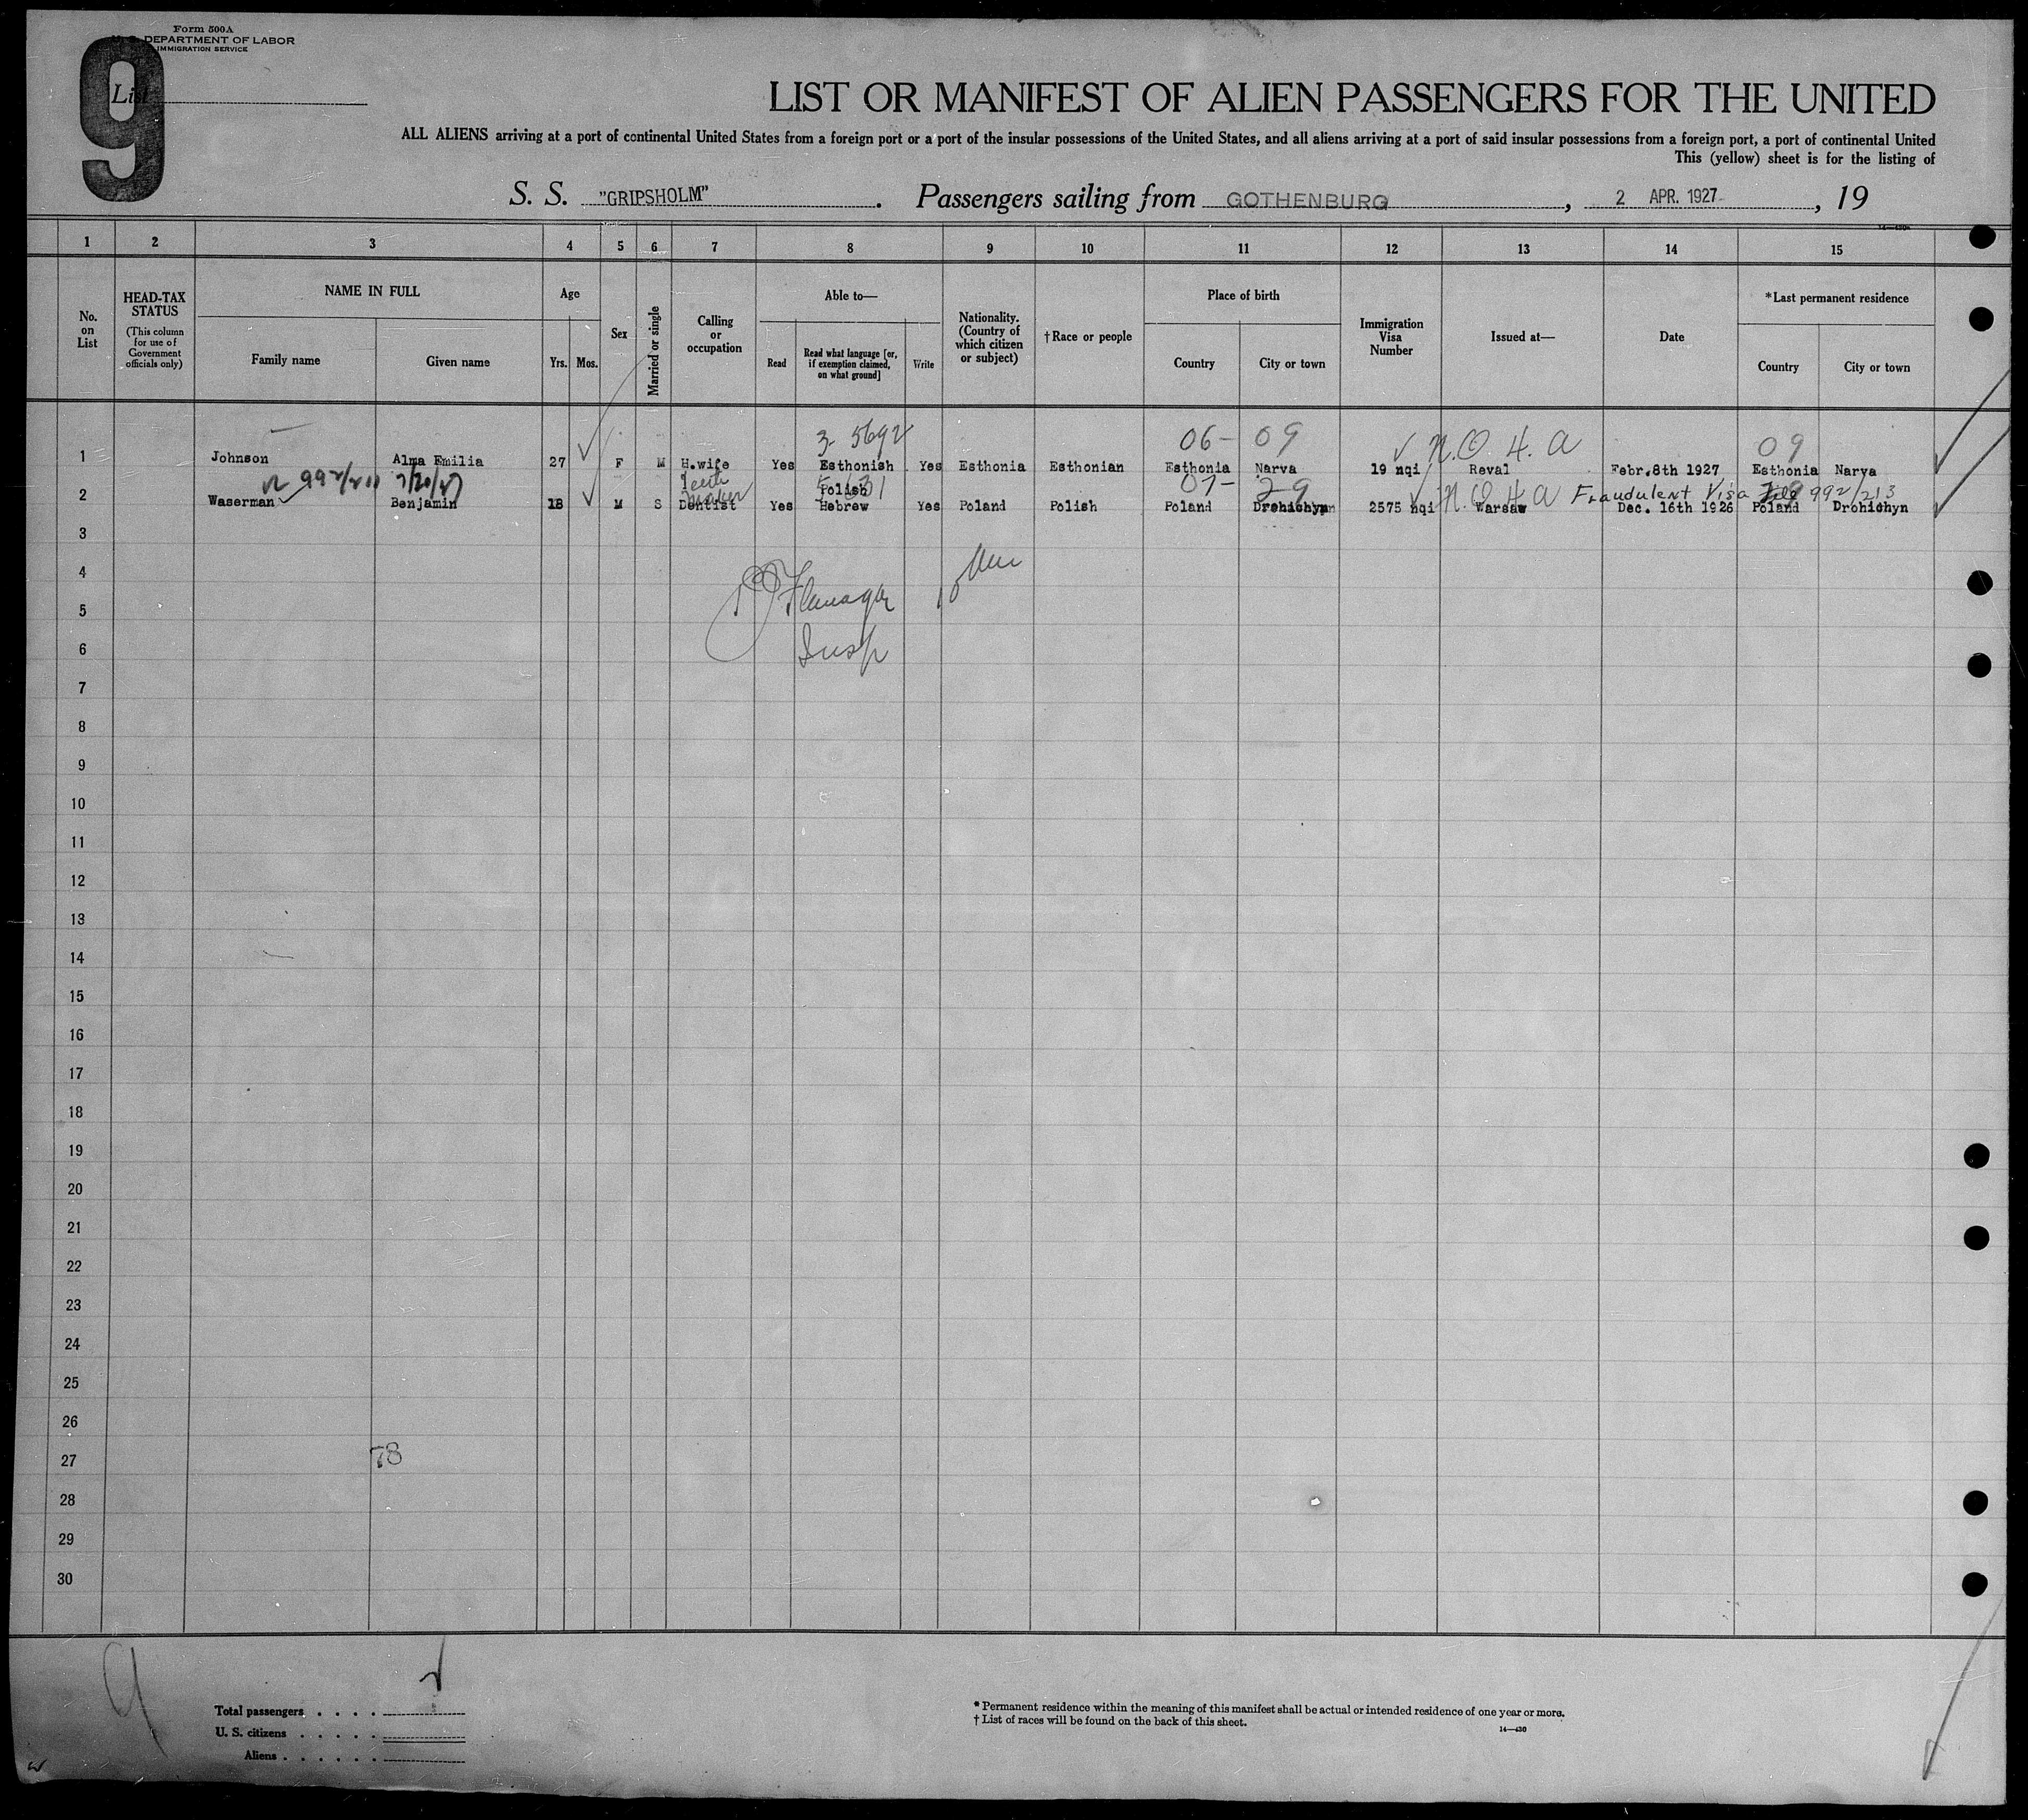 Form 500A
U. S. DEPARTMENT OF LABOR
IMMIGRATION SERVICE
9
List
LIST OR MANIFEST OF ALIEN PASSENGERS FOR THE UNITED
ALL ALIENS arriving at a port of continental United States from a foreign port or a port of the insular possessions of the United States, and all aliens arriving at a port of said insular possessions from a foreign port, a port of continental United
This (yellow) sheet is for the listing of
S. S. "GRIPSHOLM". Passengers sailing from GOTHENBURG, 2 APR. 1927, 19
1 2 3 4 5 6 7 8 9 10 11 12 13 14 15
No. on List
HEAD-TAX STATUS (This column for use of Government officials only)
NAME IN FULL
Family name Given name
Age
Yrs. Mos.
Sex
Married or single
Calling or occupation
Able to—
Read Read what language [or, if exemption claimed, on what ground] Write
Nationality. (Country of which citizen or subject)
†Race or people
Place of birth
Country City or town
Immigration Visa Number
Issued at—
Date
*Last permanent residence
Country City or town
3 5692 06- 09 N.O.H.A 09
1 Johnson Alma Emilia 27 F M H.wife Yes Esthonish Yes Esthonia Esthonian Esthonia Narva 19 nqi Reval Febr.8th 1927 Esthonia Narva
7/20/27 Teeth Maker Polish 07- 29 N.O.H.A Fraudulent Visa File 992/213
2 Waserman Benjamin 18 M S Dentist Yes Hebrew Yes Poland Polish Poland Drohichyn 2575 nqi Warsaw Dec. 16th 1926 Poland Drohichyn
3
4
5 Flanagan
6 Insp
7
8
9
10
11
12
13
14
15
16
17
18
19
20
21
22
23
24
25
26
27 78
28
29
30
9
Total passengers
U. S. citizens
Aliens
* Permanent residence within the meaning of this manifest shall be actual or intended residence of one year or more.
† List of races will be found on the back of this sheet.
14—430